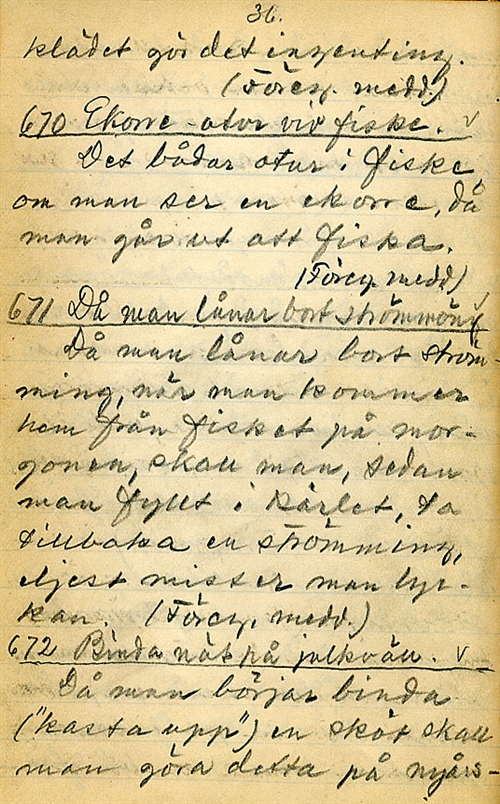 36.
klädet gör det ingenting.
(Föreg. medd.)
670 Ekorre - otur vid fiske. √
Det bådar otur i fiske,
om man ser en ekorre, då
man går ut att fiska.
(Föreg. medd.)
671 Då man lånar bort strömming √
Då man lånar bort ström-
ming, när man kommer
hem från fisket på mor-
gonen, skall man, sedan
man fyllt i kärlet, ta
tillbaka en strömming,
eljest mister man lyc-
kan. (Föreg. medd.)
672 Binda nät på julkväll. √
Då man börjar binda
("kasta upp") en sköt skall
man göra detta på nyårs-